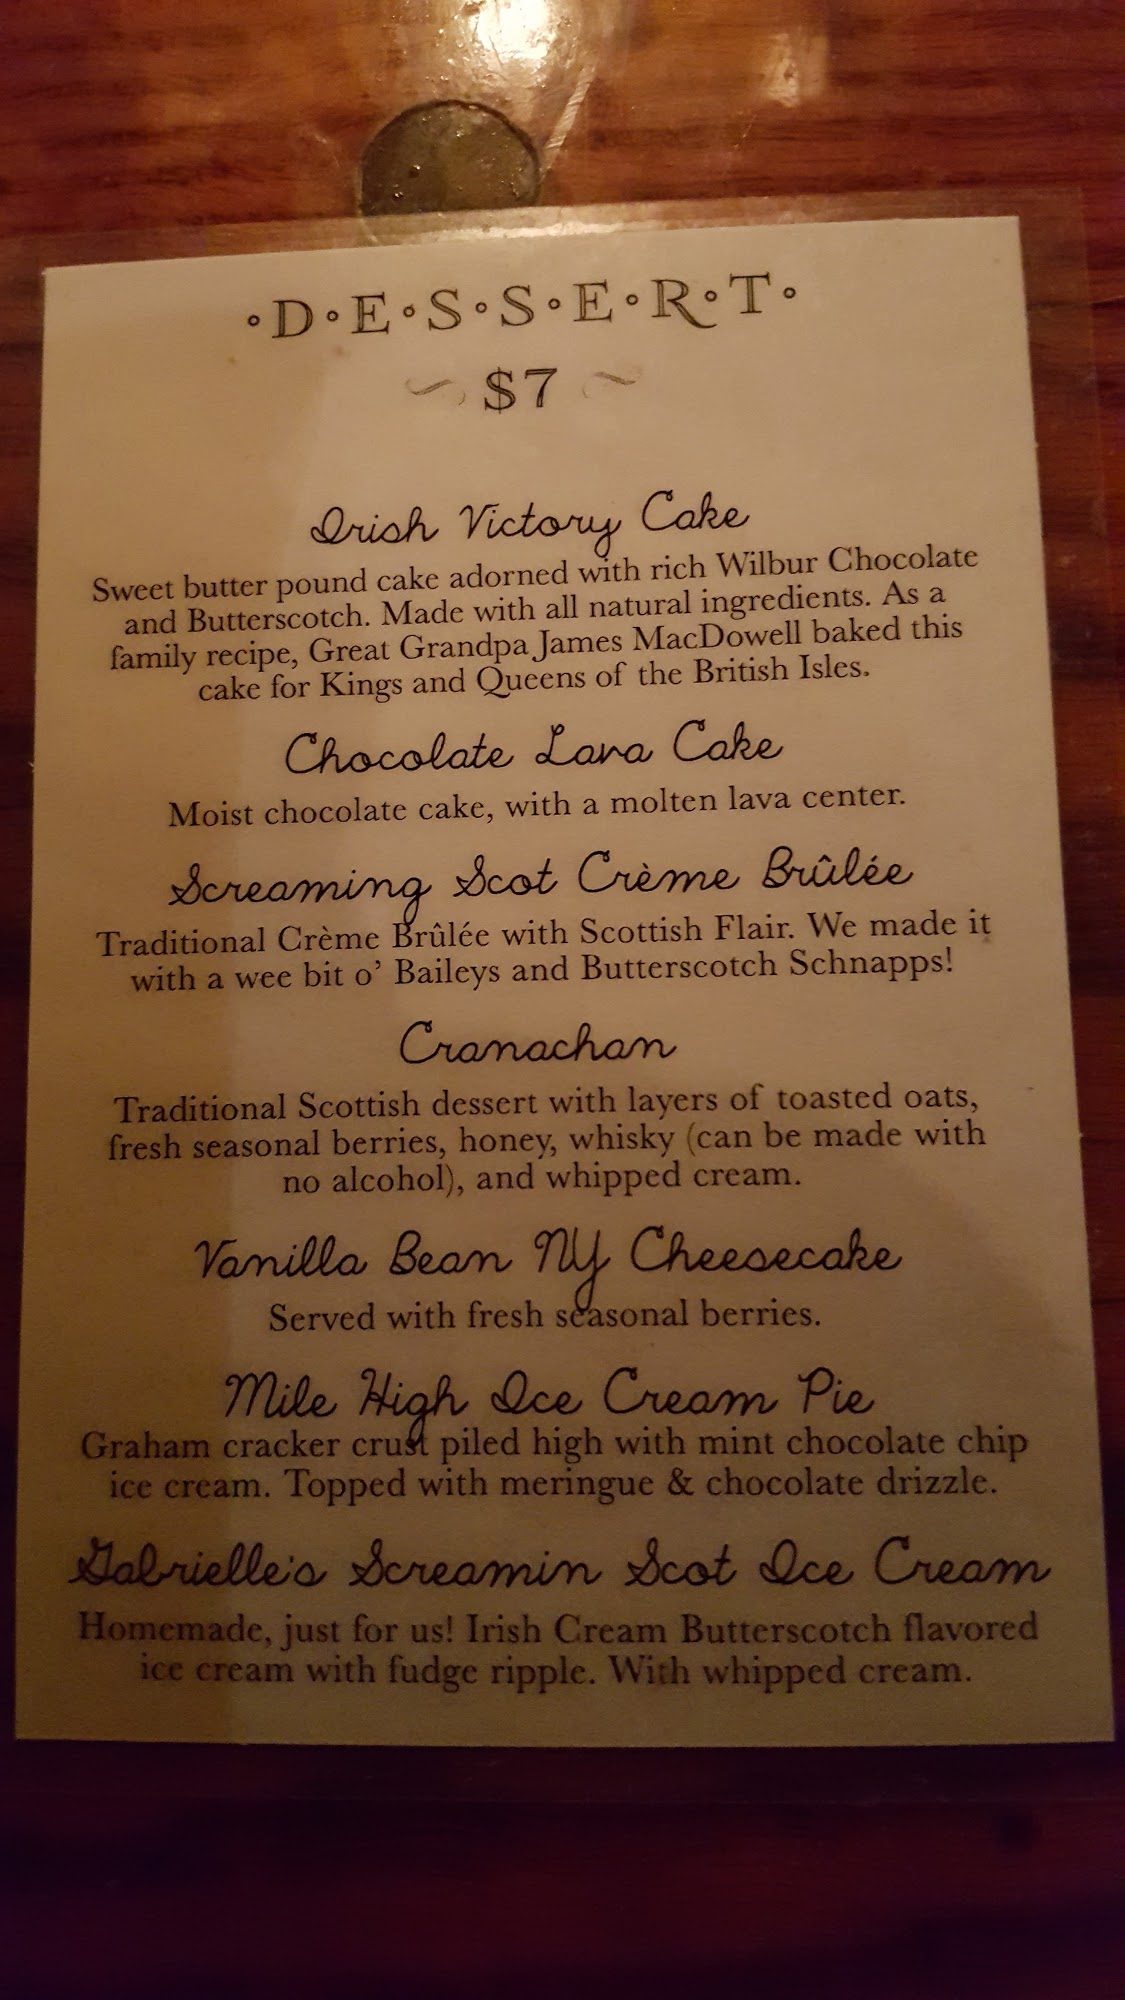 ·D·E·S·S·E·R·T·
~ $7 ~
Irish Victory Cake
Sweet butter pound cake adorned with rich Wilbur Chocolate
and Butterscotch. Made with all natural ingredients. As a
family recipe, Great Grandpa James MacDowell baked this
cake for Kings and Queens of the British Isles.
Chocolate Lava Cake
Moist chocolate cake, with a molten lava center.
Screaming Scot Crème Brûlée
Traditional Crème Brûlée with Scottish Flair. We made it
with a wee bit o’ Baileys and Butterscotch Schnapps!
Cranachan
Traditional Scottish dessert with layers of toasted oats,
fresh seasonal berries, honey, whisky (can be made with
no alcohol), and whipped cream.
Vanilla Bean NY Cheesecake
Served with fresh seasonal berries.
Mile High Ice Cream Pie
Graham cracker crust piled high with mint chocolate chip
ice cream. Topped with meringue & chocolate drizzle.
Gabrielle's Screamin Scot Ice Cream
Homemade, just for us! Irish Cream Butterscotch flavored
ice cream with fudge ripple. With whipped cream.